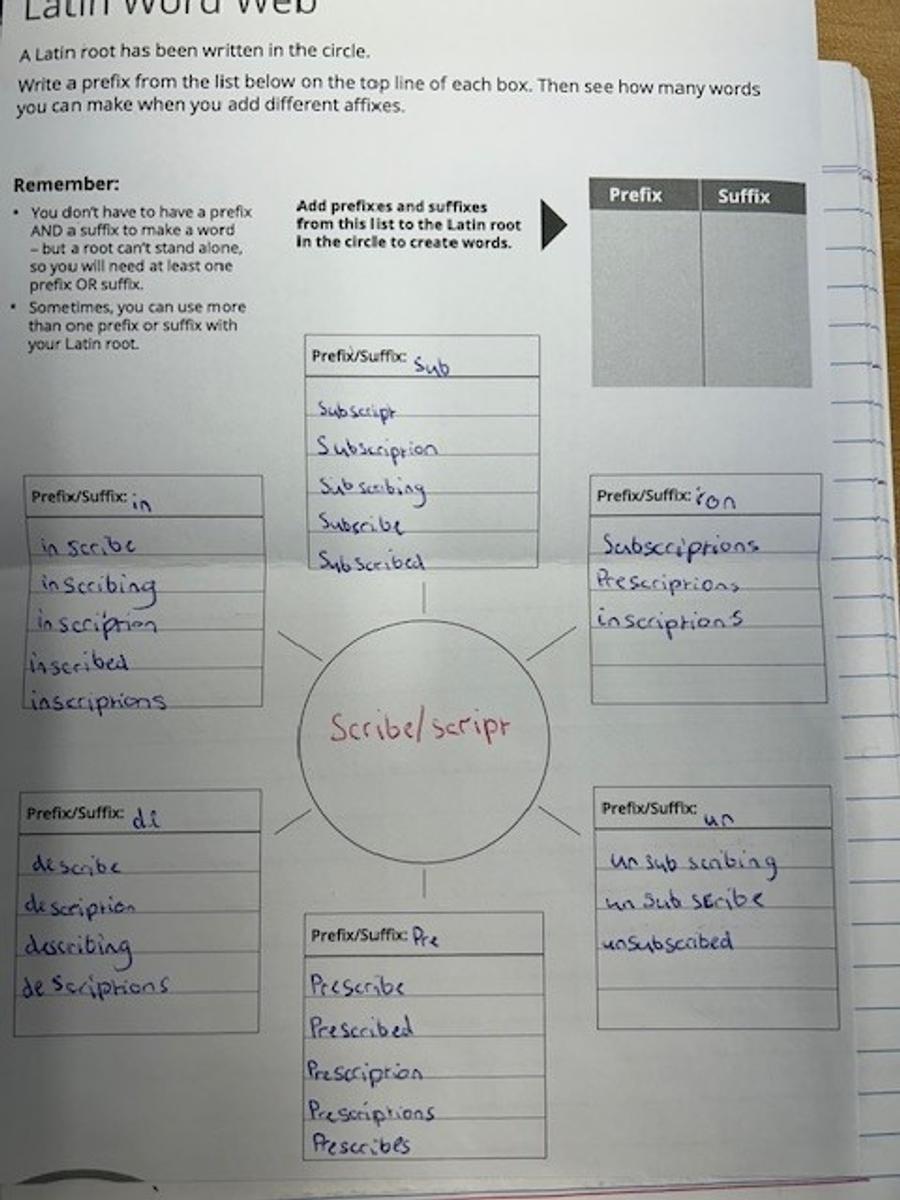 Latin Word Web
A Latin root has been written in the circle.
Write a prefix from the list below on the top line of each box. Then see how many words
you can make when you add different affixes.
Remember:
• You don't have to have a prefix
AND a suffix to make a word
– but a root can't stand alone,
so you will need at least one
prefix OR suffix.
• Sometimes, you can use more
than one prefix or suffix with
your Latin root.
Add prefixes and suffixes
from this list to the Latin root
in the circle to create words.
Prefix Suffix
Prefix/Suffix: Sub
Subscript
Subscription
Subscribing
Subscribe
Subscribed
Prefix/Suffix: in
inscribe
inscribing
inscription
inscribed
inscriptions
Prefix/Suffix: ion
Subscriptions
Prescriptions
inscriptions
Scribe/script
Prefix/Suffix: de
describe
description
describing
descriptions
Prefix/Suffix: un
unsubscribing
unsubscribe
unsubscribed
Prefix/Suffix: Pre
Prescribe
Prescribed
Prescription
Prescriptions
Prescribes